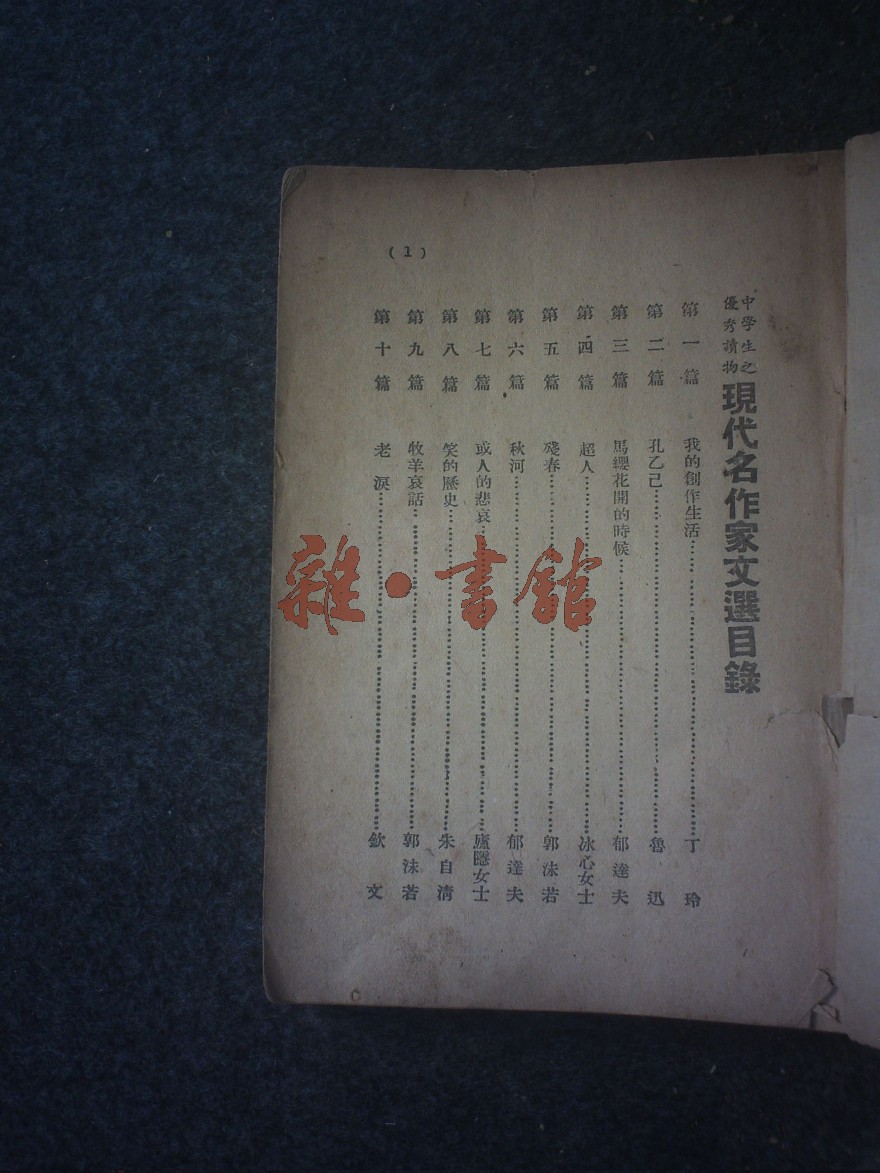 中學生之
優秀讀物
現代名作家文選目錄
第一篇 我的創作生活……丁玲
第二篇 孔乙己……魯迅
第三篇 馬纓花開的時候……郁達夫
第四篇 超人……冰心女士
第五篇 殘春……郭沫若
第六篇 秋河……郁達夫
第七篇 或人的悲哀……廬隱女士
第八篇 笑的歷史……朱自清
第九篇 牧羊哀話……郭沫若
第十篇 老淚……欽文
(1)
雜·書館